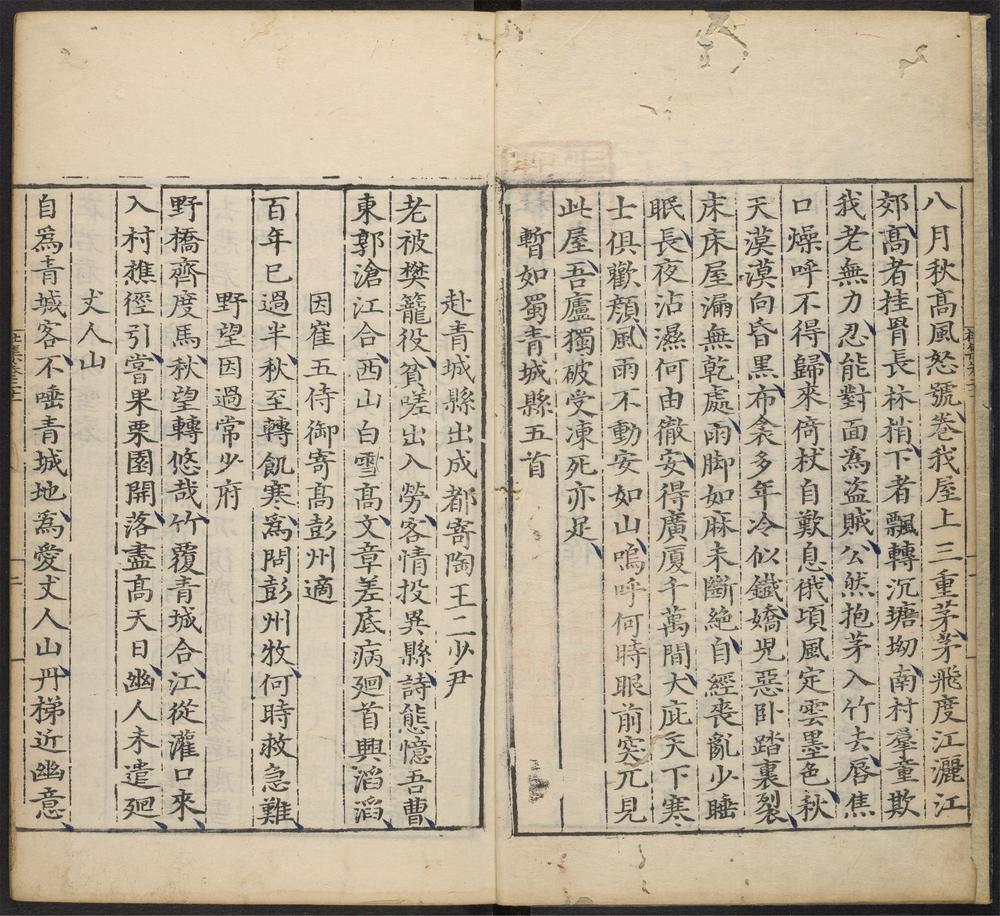 八月秋髙風怒號卷我屋上三重茅茅飛度江灑江
郊髙者挂罥長林梢下者飄轉沉塘坳南村羣童欺
我老無力忍能對面為盗賊公然抱茅入竹去唇焦
口燥呼不得歸來倚杖自歎息俄頃風定雲墨色秋
天漠漠向昏黒布衾多年冷似鐵嬌兒惡卧踏裏裂
床床屋漏無乾處雨脚如麻未斷絶自經喪亂少睡
眠長夜沾濕何由徹安得廣厦千萬間大庇天下寒
士俱歡顔風雨不動安如山嗚呼何時眼前突兀見
此屋吾廬獨破受凍死亦足
暫如蜀青城縣五首
赴青城縣出成都寄陶王二少尹
老被樊籠役貧嗟出入勞客情投異縣詩態憶吾曹
東郭滄江合西山白雪髙文章差底病廻首興滔滔
因崔五侍御寄髙彭州適
百年已過半秋至轉飢寒為問彭州牧何時救急難
野望因過常少府
野橋齊度馬秋望轉悠哉竹覆青城合江從灌口來
入村樵徑引嘗果栗園開落盡髙天日幽人未遣廻
丈人山
自為青城客不唾青城地為愛丈人山丹梯近幽意